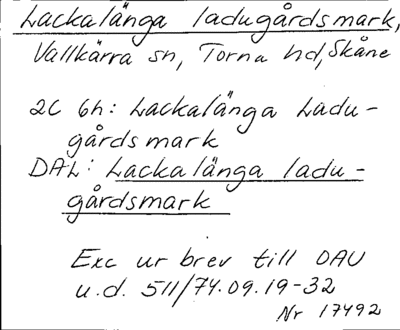 Lackalänga ladugårdsmark,
Vallkärra sn, Torna hd, Skåne
2C 6h: Lackalänga Ladu-
gårdsmark
DAL: Lackalänga ladu-
gårdsmark
Exc ur brev till OAU
u.d. 511/74.09.19-32
Nr 17492